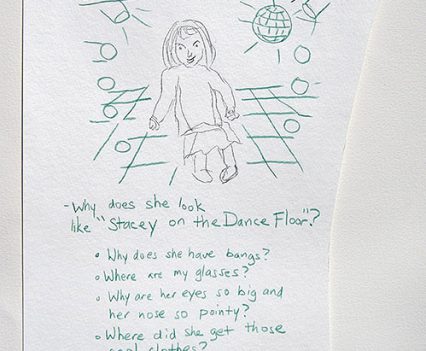 -Why does she look
like "Stacey on the Dance Floor"?
• Why does she have bangs?
• Where are my glasses?
• Why are her eyes so big and
her nose so pointy?
• Where did she get those
cool clothes?